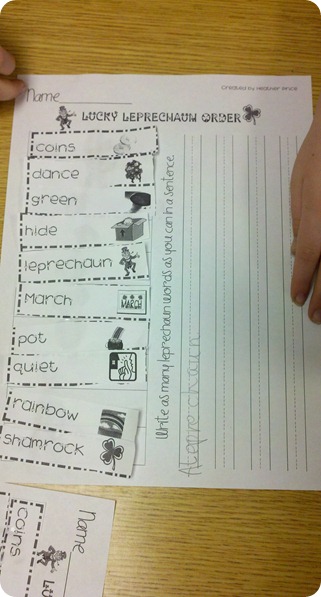 Name
Created by Heather Price
LUCKY LEPRECHAUN ORDER
coins
dance
green
hide
leprechaun
March
MARCH
pot
quiet
rainbow
shamrock
Write as many leprechaun words as you can in a sentence.
A leprechaun
Name
LU
coins